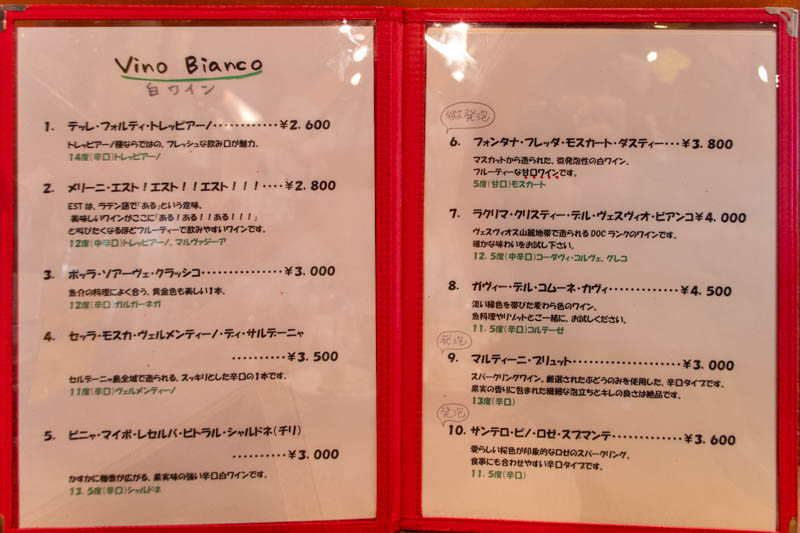 Vino Bianco
白ワイン
1. テッレ・フォルティ・トレッビアーノ・・・・・・・・・・・・¥2. 600
トレッビアーノ種ならではの、フレッシュな飲み口が魅力。
14度(辛口)トレッビアーノ
2. メリーニ・エスト！エスト！！エスト！！！・・・・¥2. 800
EST は、ラテン語で「ある」という意味。
美味しいワインがここに「ある！ある！！ある！！！」
と叫びたくなるほどフルーティーで飲みやすいワインです。
12度(中辛口)トレッビアーノ、マルヴァジーア
3. ボッラ・ソアーヴェ・クラッシコ・・・・・・・・・・・・・¥3. 000
魚介の料理によく合う、黄金色も美しい1本。
12度(辛口)ガルガーネガ
4. セッラ・モスカ・ヴェルメンティーノ・ディ・サルデーニャ
・・・・・・・・・¥3. 500
セルデーニャ島全域で造られる、スッキリとした辛口の1本です。
11度(辛口)ヴェルメンティーノ
5. ビニャ・マイポ・レセルバ・ビトラル・シャルドネ(チリ)
・・・・・・・・・¥3. 000
かすかに樽香が広がる、果実味の強い辛口白ワインです。
13. 5度(辛口)シャルドネ
微発泡
6. フォンタナ・フレッダ・モスカート・ダスティー・・・¥3. 800
マスカットから造られた、微発泡性の白ワイン。
フルーティーな甘口ワインです。
5度(甘口)モスカート
7. ラクリマ・クリスティー・デル・ヴェスヴィオ・ビアンコ¥4. 000
ヴェスヴィオス山麓地帯で造られるDOCランクのワインです。
確かな味わいをお試し下さい。
12. 5度(中辛口)コーダヴィ・コルヴェ、グレコ
8. ガヴィー・デル・コムーネ・ガヴィ・・・・・・・・・・・・¥4. 500
淡い緑色を帯びた麦わら色のワイン。
魚料理やリゾットとご一緒に、お試しください。
11. 5度(辛口)コルテーゼ
発泡
9. マルティーニ・ブリュット・・・・・・・・・・・・・・・・・・¥3. 000
スパークリングワイン。厳選されたぶどうのみを使用した、辛口タイプです。
果実の香りに包まれた繊細な泡立ちとキレの良さは絶品です。
13度(辛口)
発泡
10. サンテロ・ピノ・ロゼ・スプマンテ・・・・・・・・・・・¥3. 600
愛らしい桜色が印象的なロゼのスパークリング。
食事にも合わせやすい辛口タイプです。
11. 5度(辛口)